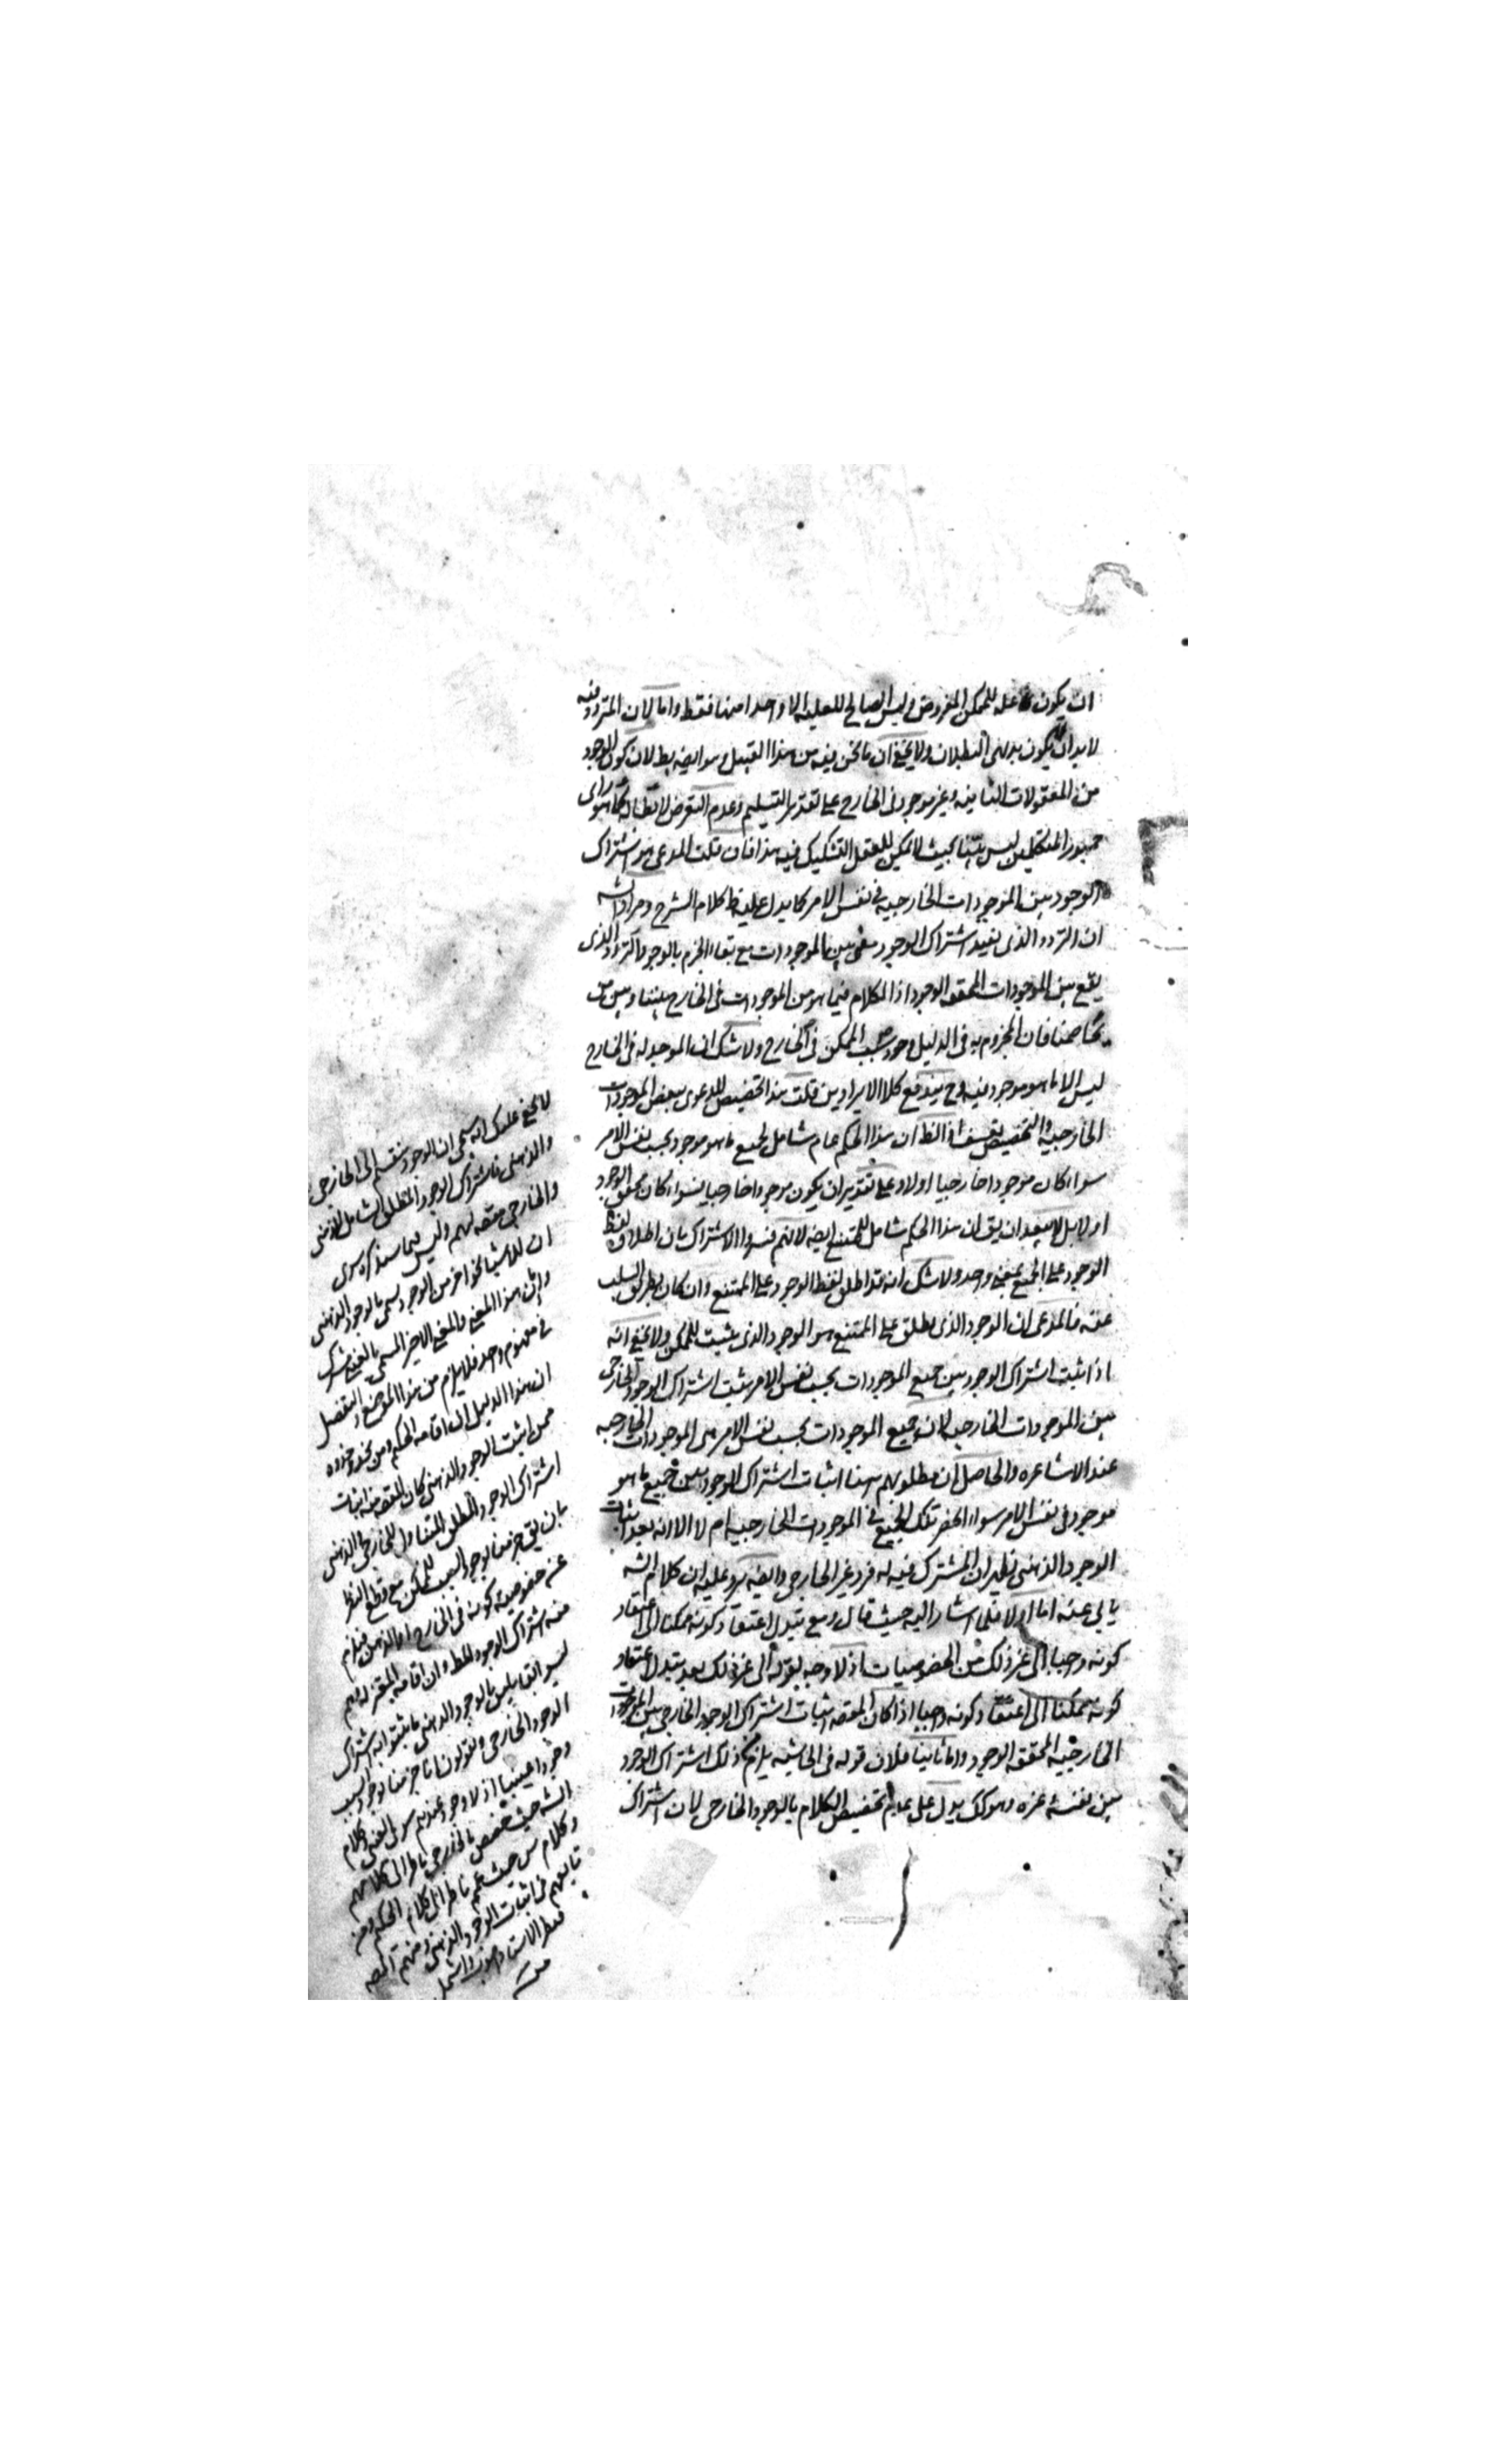 ان يكون علة للممكن المفروض وليس الصالح للعلية الا واحدا منها فقط واما لان المتردد فيه
لابد ان لا يكون بديهى البطلان ولا يخفى ان ما نحن فيه من هذا القبيل وهو ايضه بطلان كون الوجود
من المعقولات الثانية وغير موجود فى الخارج على تقدير التسليم وعدم التعرض لابطاله كما هو راى
جمهور المتكلمين ليس بينا بحيث لا يمكن للعقل التشكيك فيه هذا فان قلت المدعى هو اشتراك
الوجود بين الموجودات الخارجية فى نفس الامر كما يدل عليه ظ كلام الشرح ومراد الشه
ان التردد الذى يفيد اشتراك الوجود معنى بين الموجودات مع بقاء الجزم بالوجود التردد الذى
يقع بين الموجودات المحققة الوجود اذ الكلام فيما هو من الموجودات فى الخارج بيننا وبين من
يخاصمنا فان المجزوم به فى الدليل وجود سبب الممكن فى الخارج ولا شك ان الموجد له فى الخارج
ليس الا ما هو موجود فيه وح يندفع كلا الايرادين قلت هذا تخصيص للدعوى ببعض الموجودات
الخارجية والتخصيص تعسف اذ الظ ان هذا الحكم عام شامل لجميع ما هو موجود بحسب نفس الامر
سواء كان موجودا خارجيا اولا وعلى تقدير ان يكون موجودا خارجيا فسواء كان محقق الوجود
او لا بل لا يبعد ان يق ان هذا الحكم شامل للممتنع ايضه لانهم فسروا الاشتراك بان اطلاق لفظ
الوجود على الجميع بمعنى واحد ولا شك انه قد اطلق لفظ الوجود على الممتنع وان كان بطريق السلب
عنه فالمدعى ان الوجود الذى يطلق على الممتنع هو الوجود الذى يثبت للممكن ولا يخفى انه
اذا ثبت اشتراك الوجود بين جميع الموجودات بحسب نفس الامر يثبت اشتراك الوجود الخارجى
بين الموجودات الخارجية لان جميع الموجودات بحسب نفس الامر هى الموجودات الخارجية
عند الاشاعره والحاصل ان مطلوبهم هنا اثبات اشتراك الوجود بين جميع ما هو
موجود فى نفس الامر سواء انحصر تلك الجميع فى الموجودات الخارجية ام لا الا انه بعد اثبات
الوجود الذهنى يظهر ان المشترك فيه له فرد غير الخارجى وايضه يرد عليه ان كلام الشه
يابى عنه اما اولا فلما اشار اليه حيث قال ومع تبدل اعتقاد كونه ممكنا الى اعتقاد
كونه واجبا الى غير ذلك من الخصوصيات اذ لا وجه لقوله الى غير ذلك بعد تبدل اعتقاد
كونه ممكنا الى اعتقاد كونه واجبا اذا كان المقصه اثبات اشتراك الوجود الخارجى بين الموجودات
الخارجية المحققة الوجود واما ثانيا فلان قوله فى الحاشيه يلزم ذلك اشتراك الوجود
بين نفسه وغيره وهو كك يدل على عدم تخصيص الكلام بالوجود الخارجى لان اشتراك
لا يخفى عليك انه سيجى ان الوجود ينقسم الى الخارجى
والذهنى فاشتراك الوجود المطلق الشامل للذهنى
والخارجى مقصه لهم وليس فيما سيذكره سوى
ان للاشياء نحوا اخر من الوجود يسمى بالوجود الذهنى
وان هذا المعنى والمعنى الاخر المسمى بالعينى مشترك
فى مفهوم واحد فلا يلزم من هذا الموضع
ان هذا الدليل ان اقامه الحكيم ومن يحذو حذوه
ممن اثبت الوجود الذهنى كان المقصه منه اثبات
اشتراك الوجود المطلق المتناول للخارجى والذهنى
بان يق جزمنا بوجود السبب للممكن مع قطع النظر
عن خصوصية كونه فى الخارج او الذهن فيلزم
منه اشتراك الوجود المط وان اقامه المعتزله فهم
ليسوا قايلين بالوجود الذهنى فاثبتوا به اشتراك
الوجود الخارجى ويقولون انا جزمنا بوجود السبب
وجودا عينيا اذ لا وجود عندهم سوى العينى وكلام
الشه حيث خصص بالخارجى ناظر الى كلامهم
وكلام س حيث عمم ناظر الى كلام الحكيم ومن
تابعهم فى اثبات الوجود الذهنى ومنهم المصه